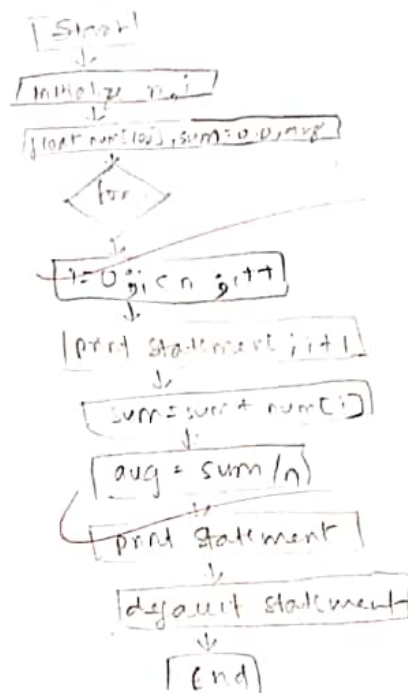 Start
initialize n,i
float num[100], sum=0.0, avg
for
i=0; i<n ; i++
print statement ; i+1
sum=sum+ num[i]
avg = sum/n
print statement
default statement
End